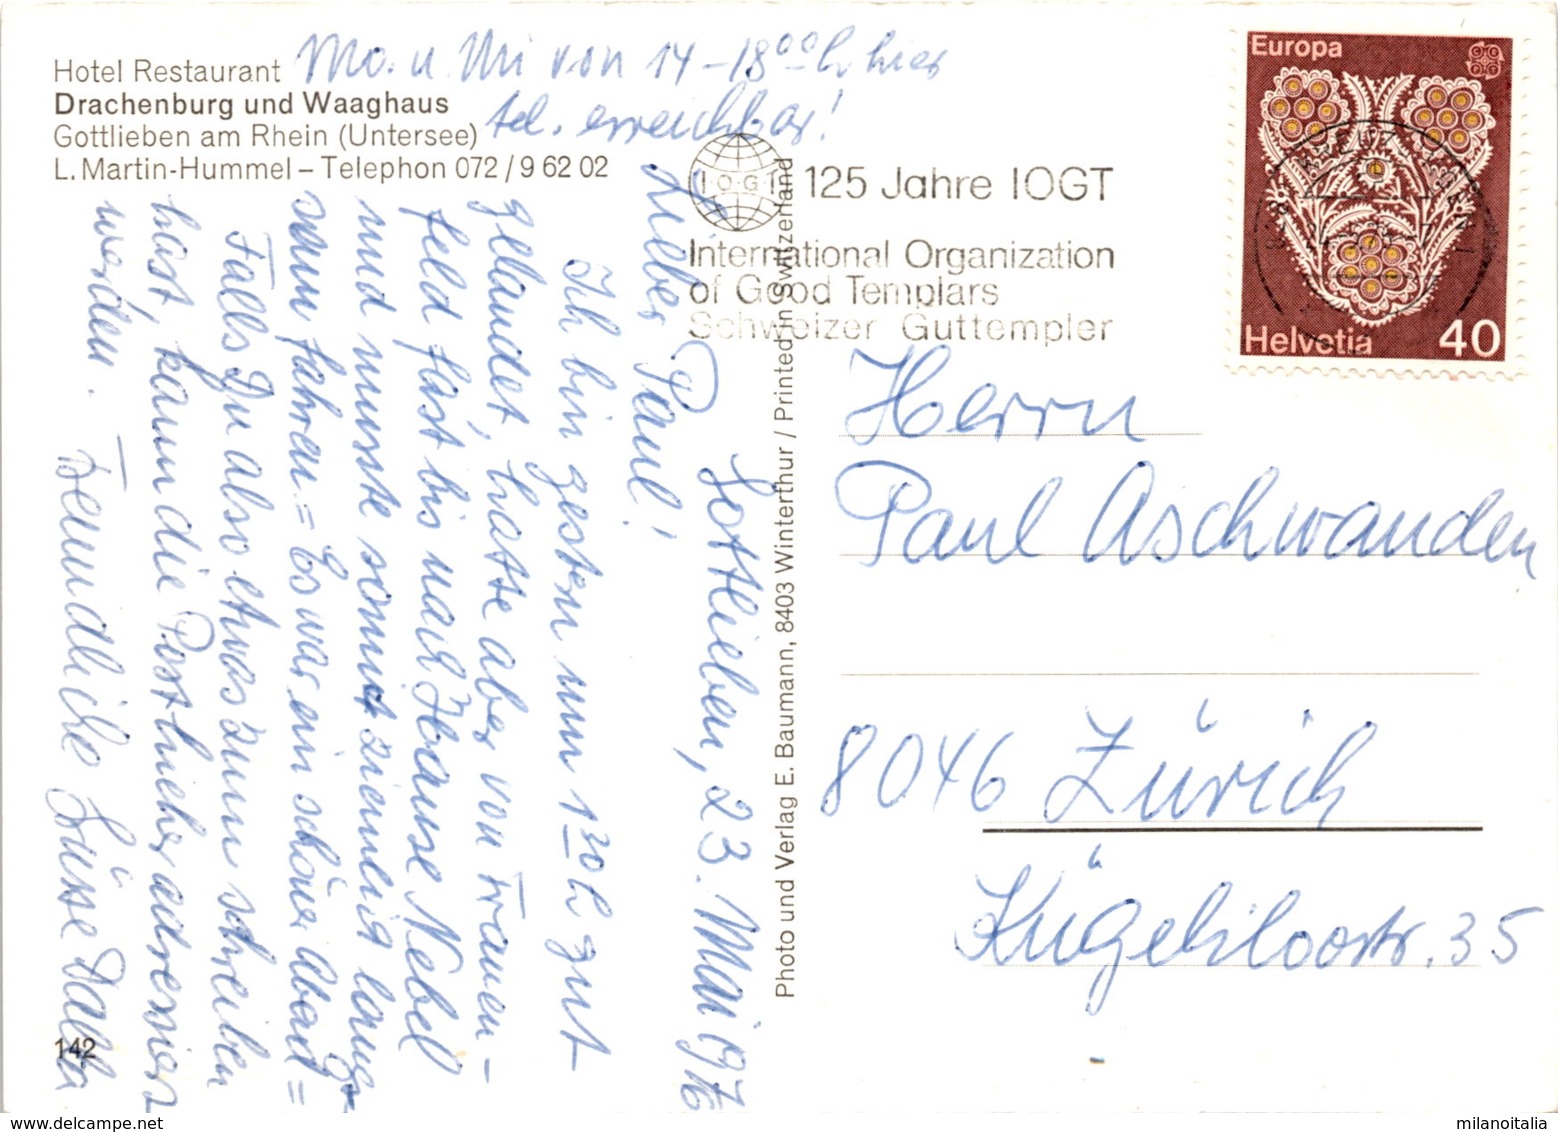 Hotel Restaurant
Drachenburg und Waaghaus
Gottlieben am Rhein (Untersee)
L. Martin-Hummel – Telephon 072 / 9 62 02
Mo. u. Mi von 14 – 18ºº h hier
tel. erreichbar!
Gottlieben, 23. Mai 1976
Lieber Paul!
Ich bin gestern um 1³⁰ h gut
gelandet, hatte aber von Frauen-
feld fast bis nach Hause Nebel
und musste somit ziemlich lang-
sam fahren = Es war ein schöner Abend =
Falls Du also etwas zum schreiben
hast, kann die Post hieher adressiert
werden. Freundliche Grüsse
142
Photo und Verlag E. Baumann, 8403 Winterthur / Printed in Switzerland
IOGT
125 Jahre IOGT
International Organization
of Good Templars
Schweizer Guttempler
Europa
CEPT
Helvetia 40
Herrn
Paul Aschwanden
8046 Zürich
Kügeliloostr. 35
milanoitalia